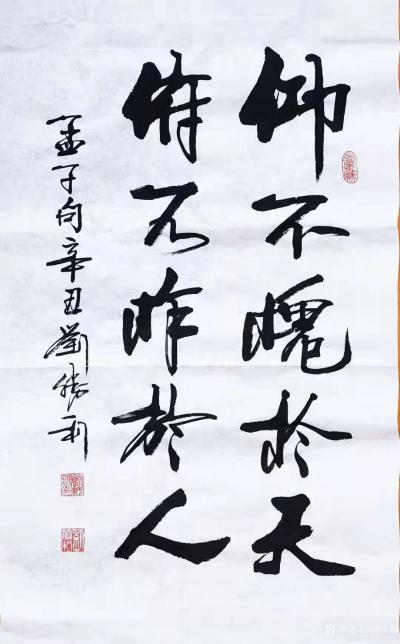 仰不愧於天
俯不怍於人
孟子句辛丑劉勝利